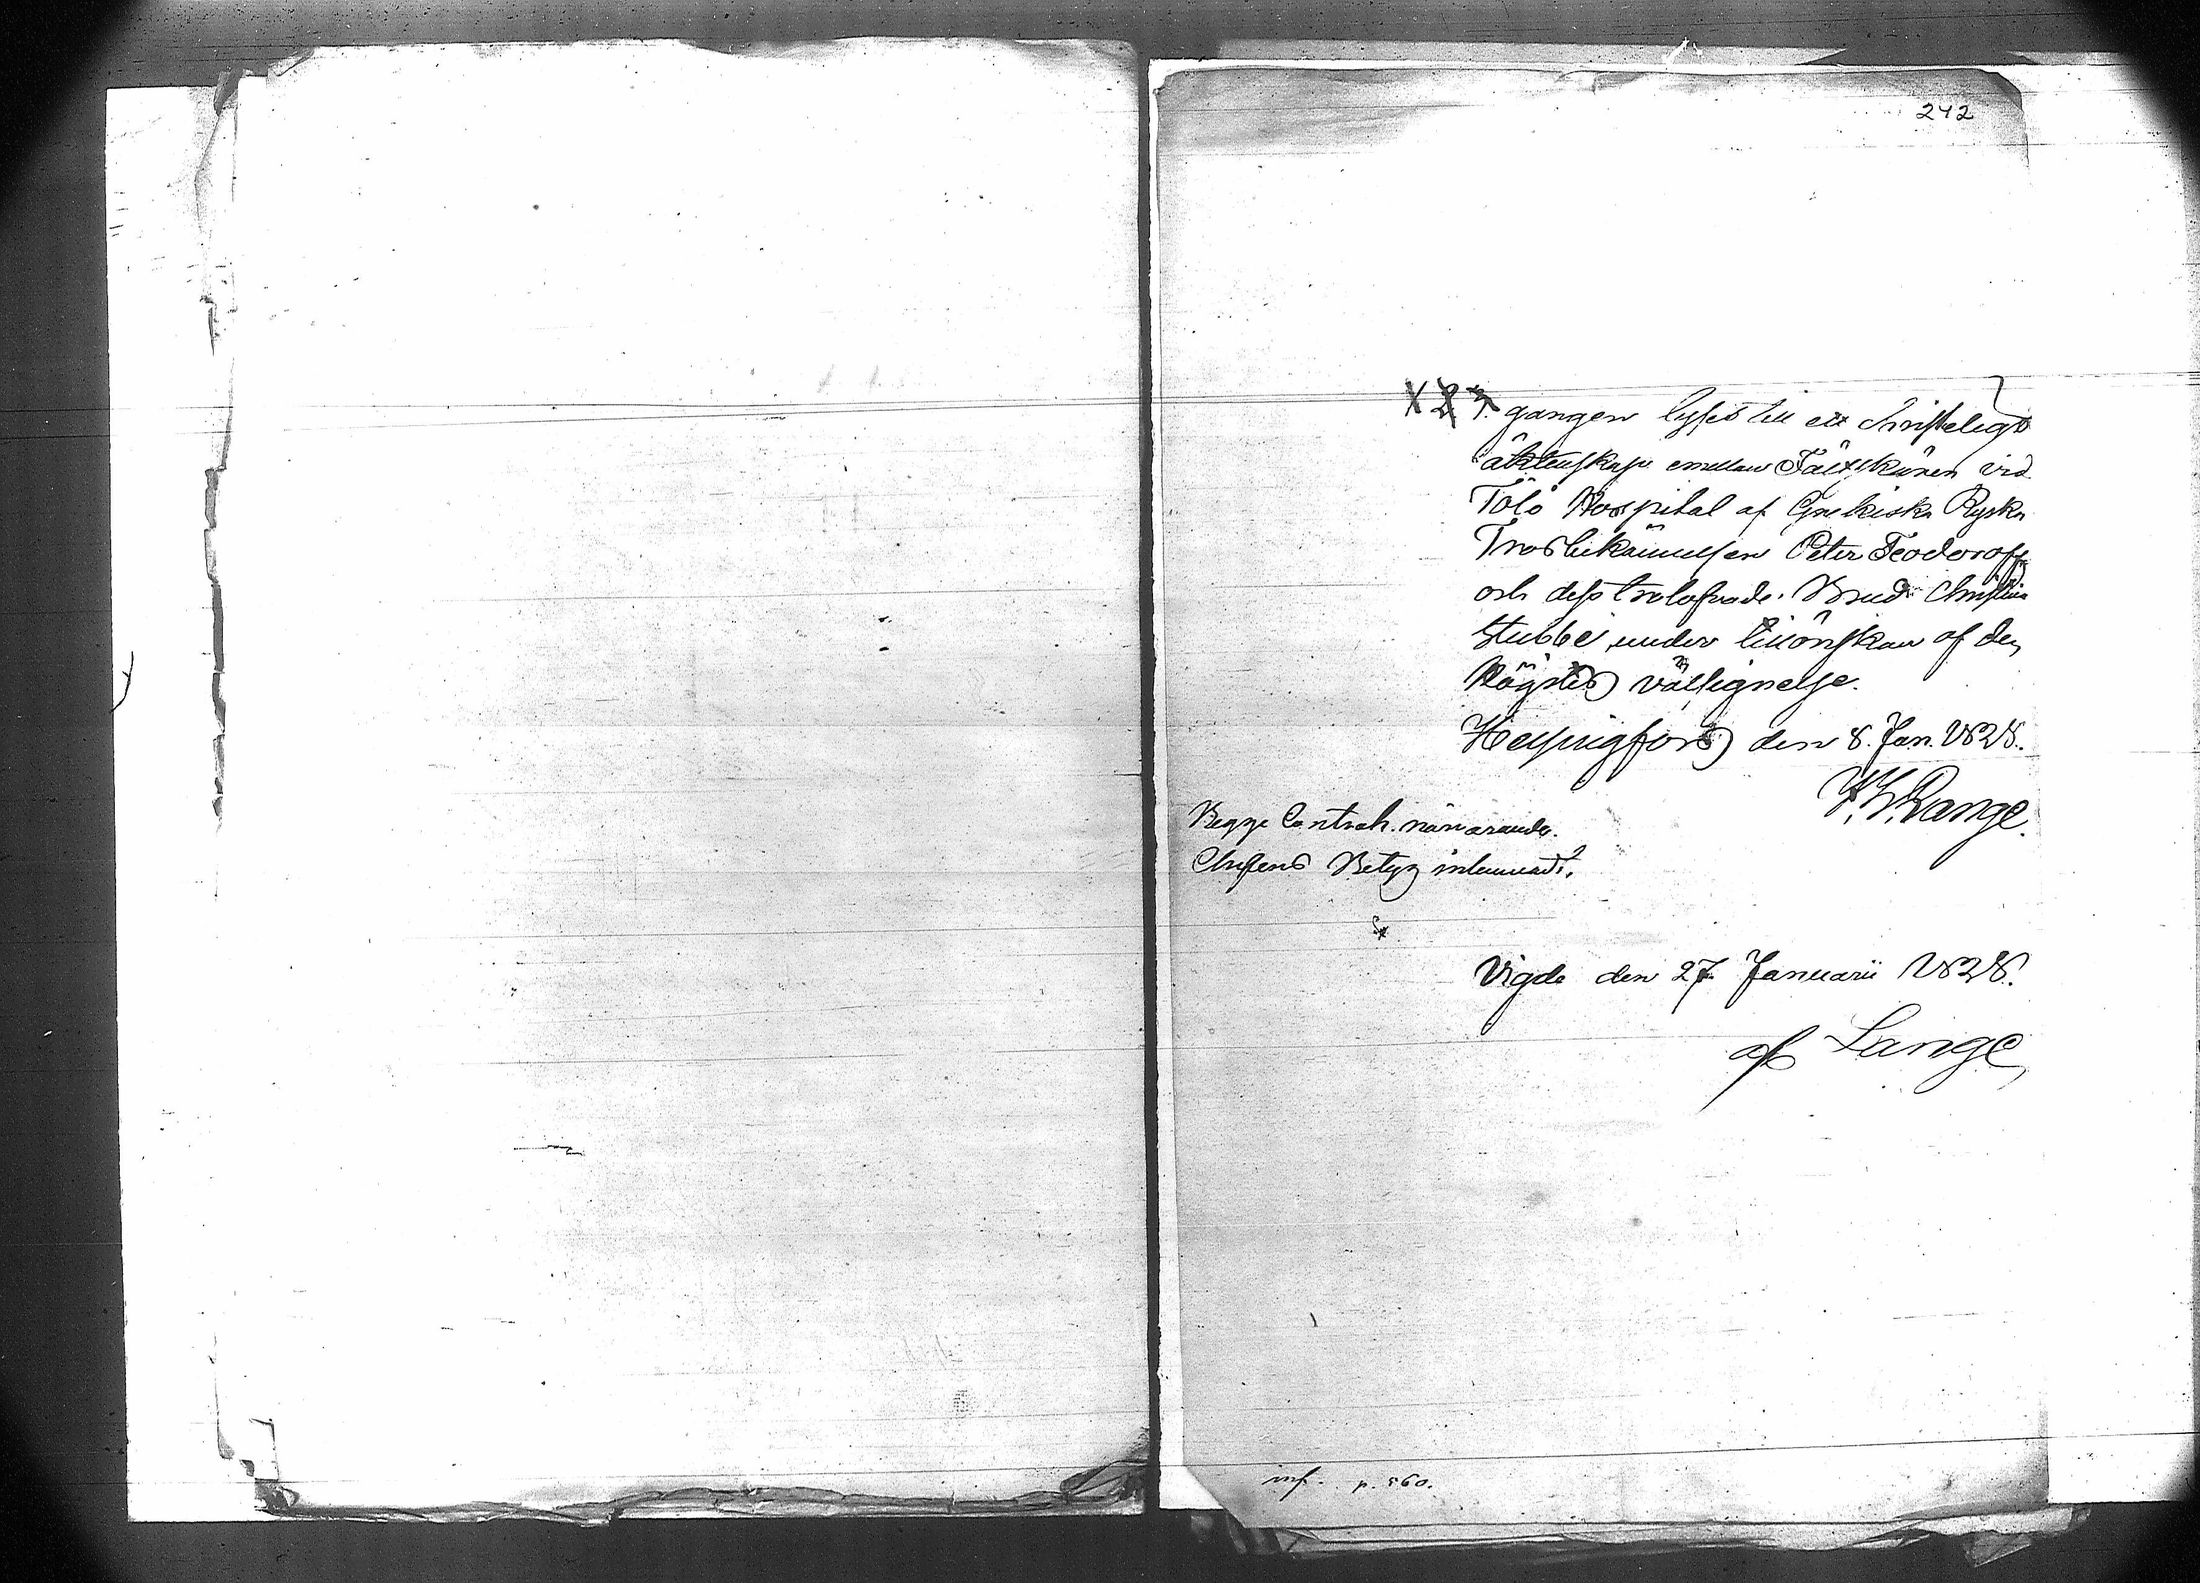 242
1 2 3. gången lyses till ett christeligt
äktenskap emellan Fältskären vid
Tölö Hospital af Grekiska Ryska
Trosbekännelsen Peter Feodoroff
och dess trolofvade Brud Christina
Stubbe, under tillönskan af den
Högstes välsignelse.
Helsingfors den 8. Jan. 1828.
Lange.
Begge Contrah. närvarande.
Chefens Betyg inlemnadt.
Vigde den 27 Januarii 1828.
af Lange
inf. p. 560.